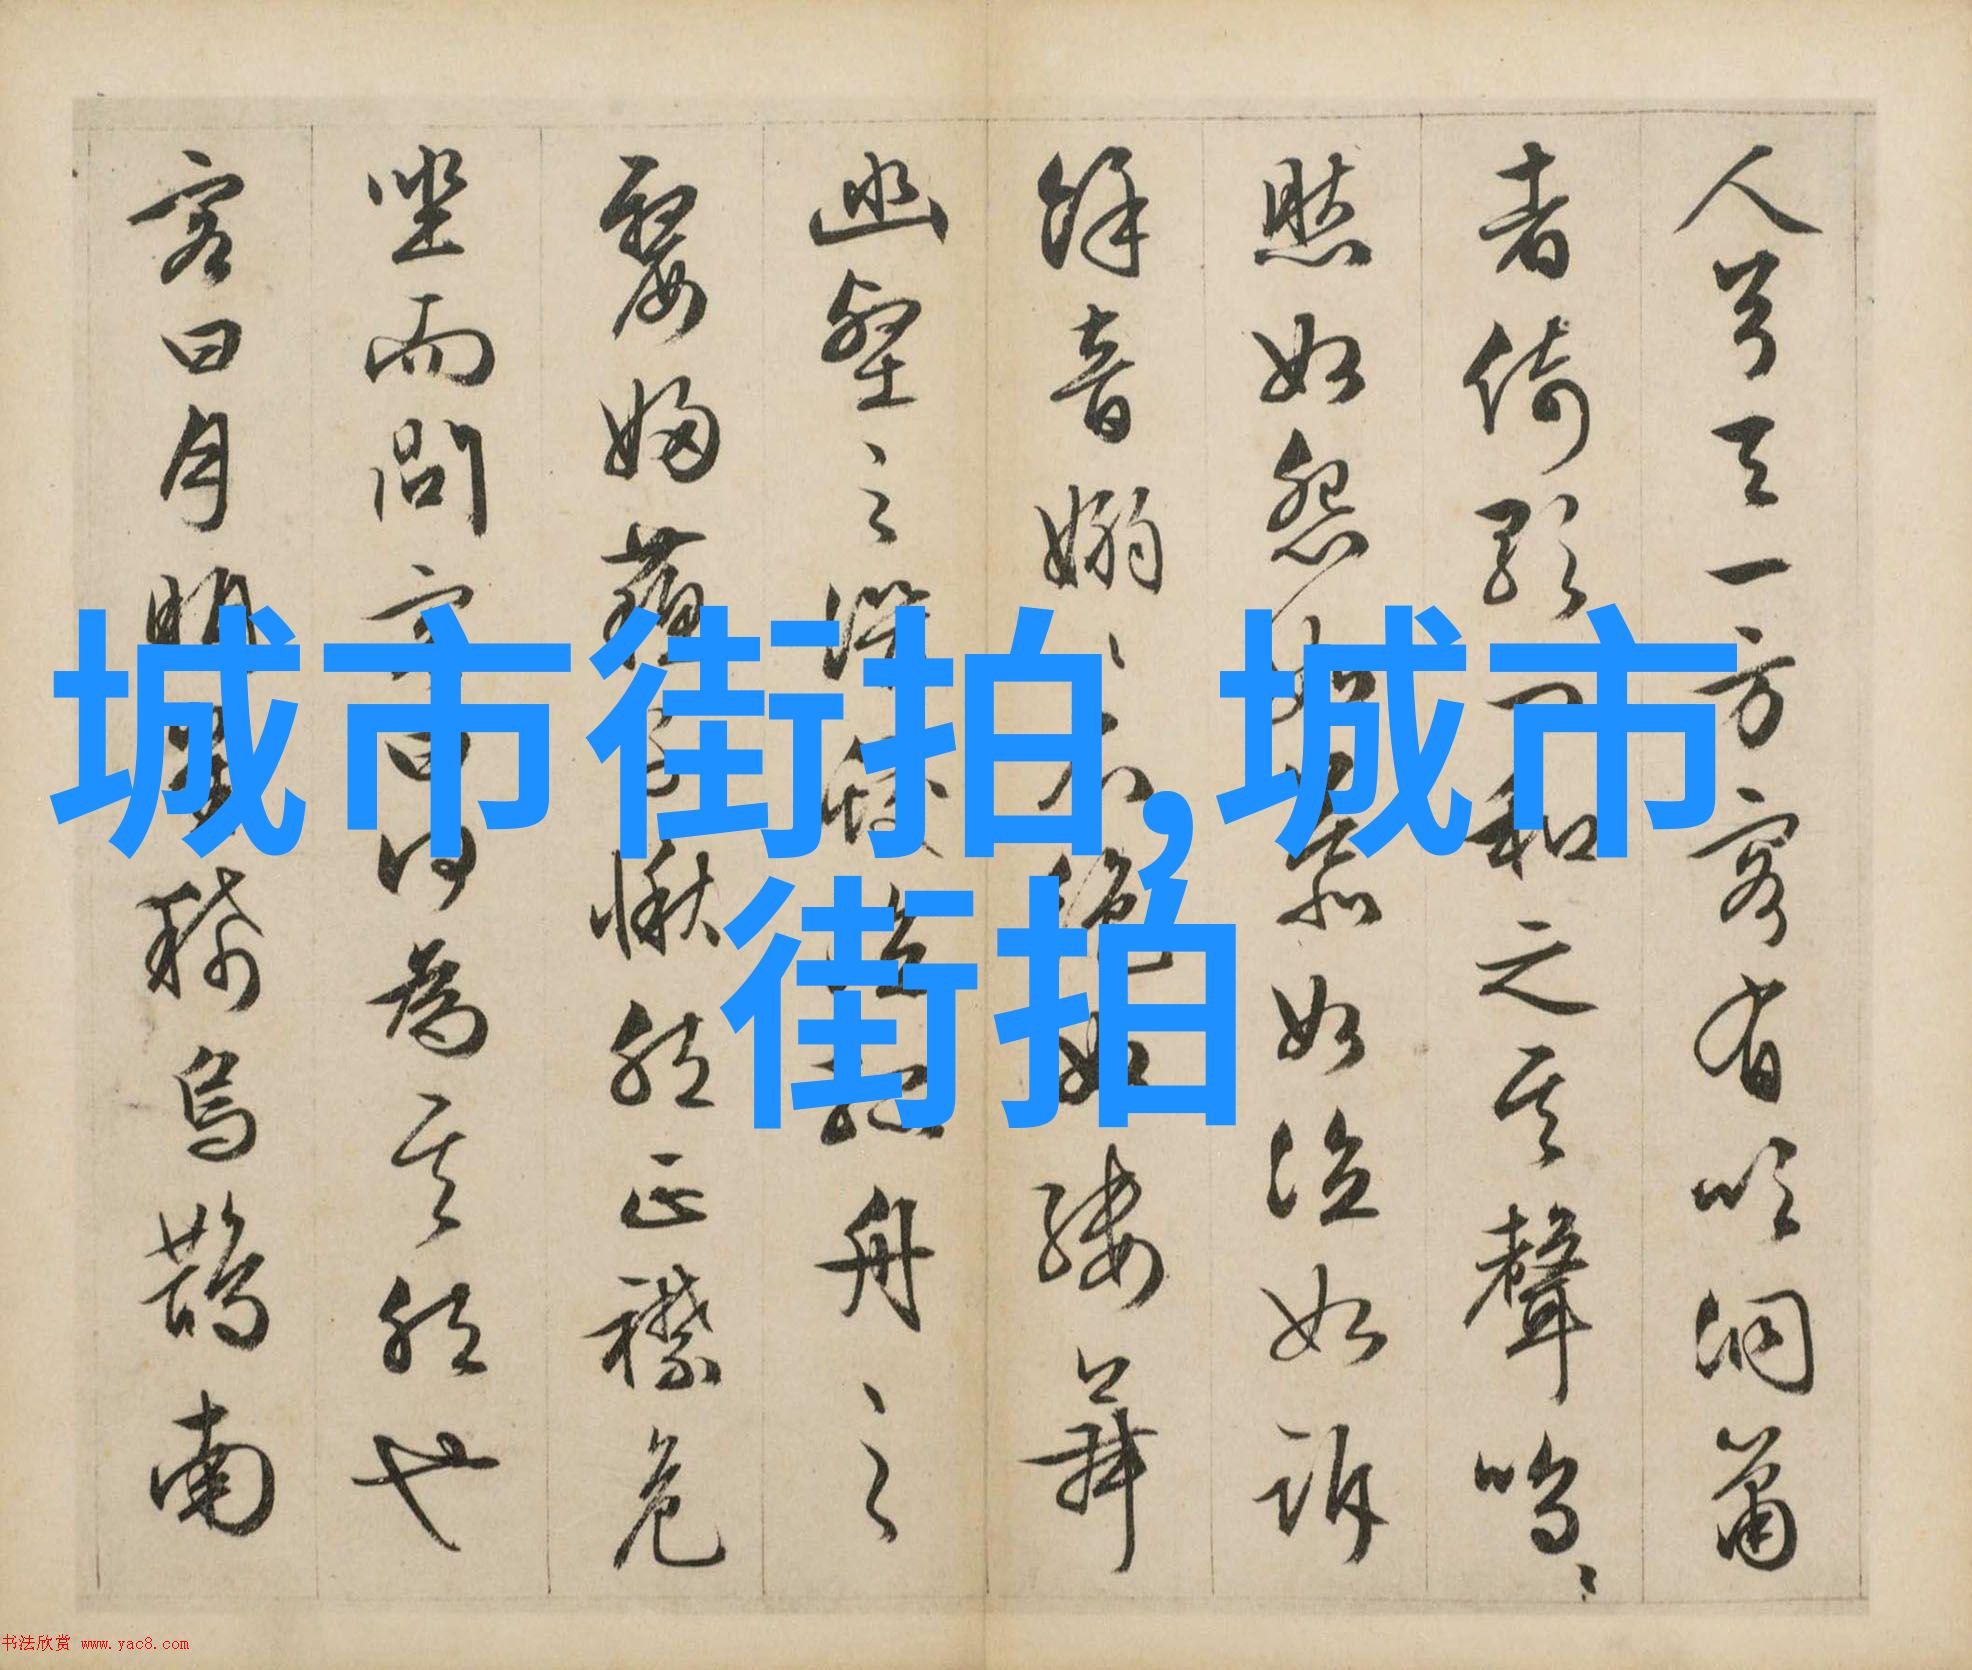 人兮天一方客有吹洞萧
者倚歌而和之其聲嗚〻
然如怨如慕如泣如訴
餘音嫋〻不絕如縷舞
幽壑之潛蛟泣孤舟之
嫠婦蘇子愀然正襟危
坐而問客曰何為其然也
客曰月明星稀烏鵲南
城市街拍,城市
街拍
书法欣赏 www.yac8.com